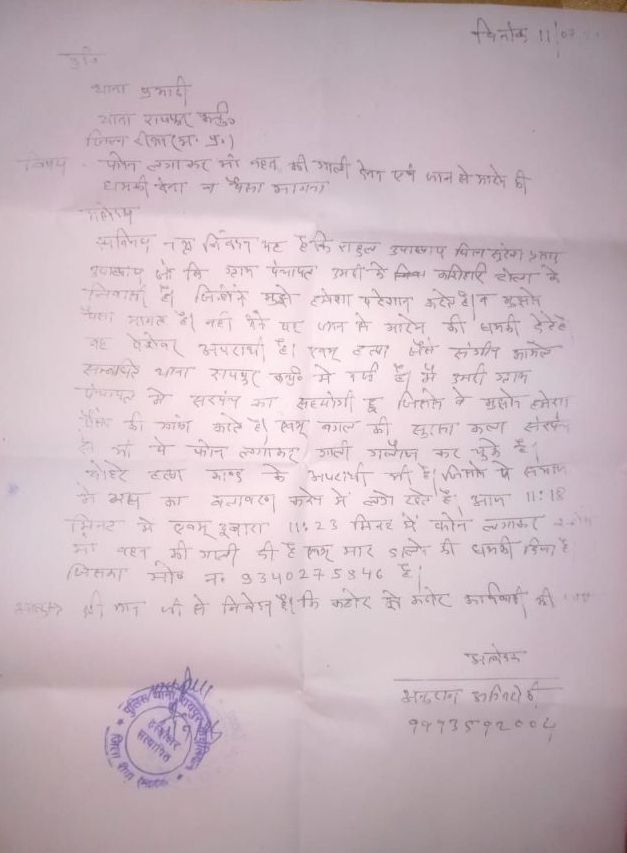 दिनांक 11/0
प्रति
थाना प्रभारी
थाना रायपुर कर्चु०
जिला रीवा (म. प्र.)
विषय - फोन लगाकर माँ बहन की गाली देना एवं जान से मारने की
धमकी देना व पैसा मांगना
महोदय
सविनय नम्र निवेदन यह है कि राहुल उपाध्याय पिता सुरेश प्रसाद
उपाध्याय जो कि ग्राम पंचायत उमरी के टोला के
निवासी है। जिन्होंने मुझे हमेशा परेशान करते है। व मुझसे
पैसा मांगते है। नही देने पर जान से मारने की धमकी देते है
वह पेशेवर अपराधी है। एवम् हत्या जैसे संगीन मामले
थाना रायपुर कर्चु० मे दर्ज है। मै उमरी ग्राम
पंचायत मे सरपंच का सहयोगी हू जिससे वे मुझसे हमेशा
पैसे की मांग करते है। एवम् बगल की सरपंच
है माँ ये फोन लगाकर गाली गलौज कर चुके है।
हत्या काण्ड के अपराधी भी है। जिससे ये समाज
मे भय का वातावरण करने में लगे रहते है। आज 11:18
मिनट मे एवम् दुबारा 11:23 मिनट में फोन लगाकर
माँ बहन की गाली दी है एवम् मार डालने की धमकी दिया है
जिसका मो० न. 9340275846 है।
श्री मान जी से निवेदन है। कि कठोर से कठोर कार्यवाही की
आवेदक
पुलिस थाना रायपुर
सत्यापित
जिला रीवा